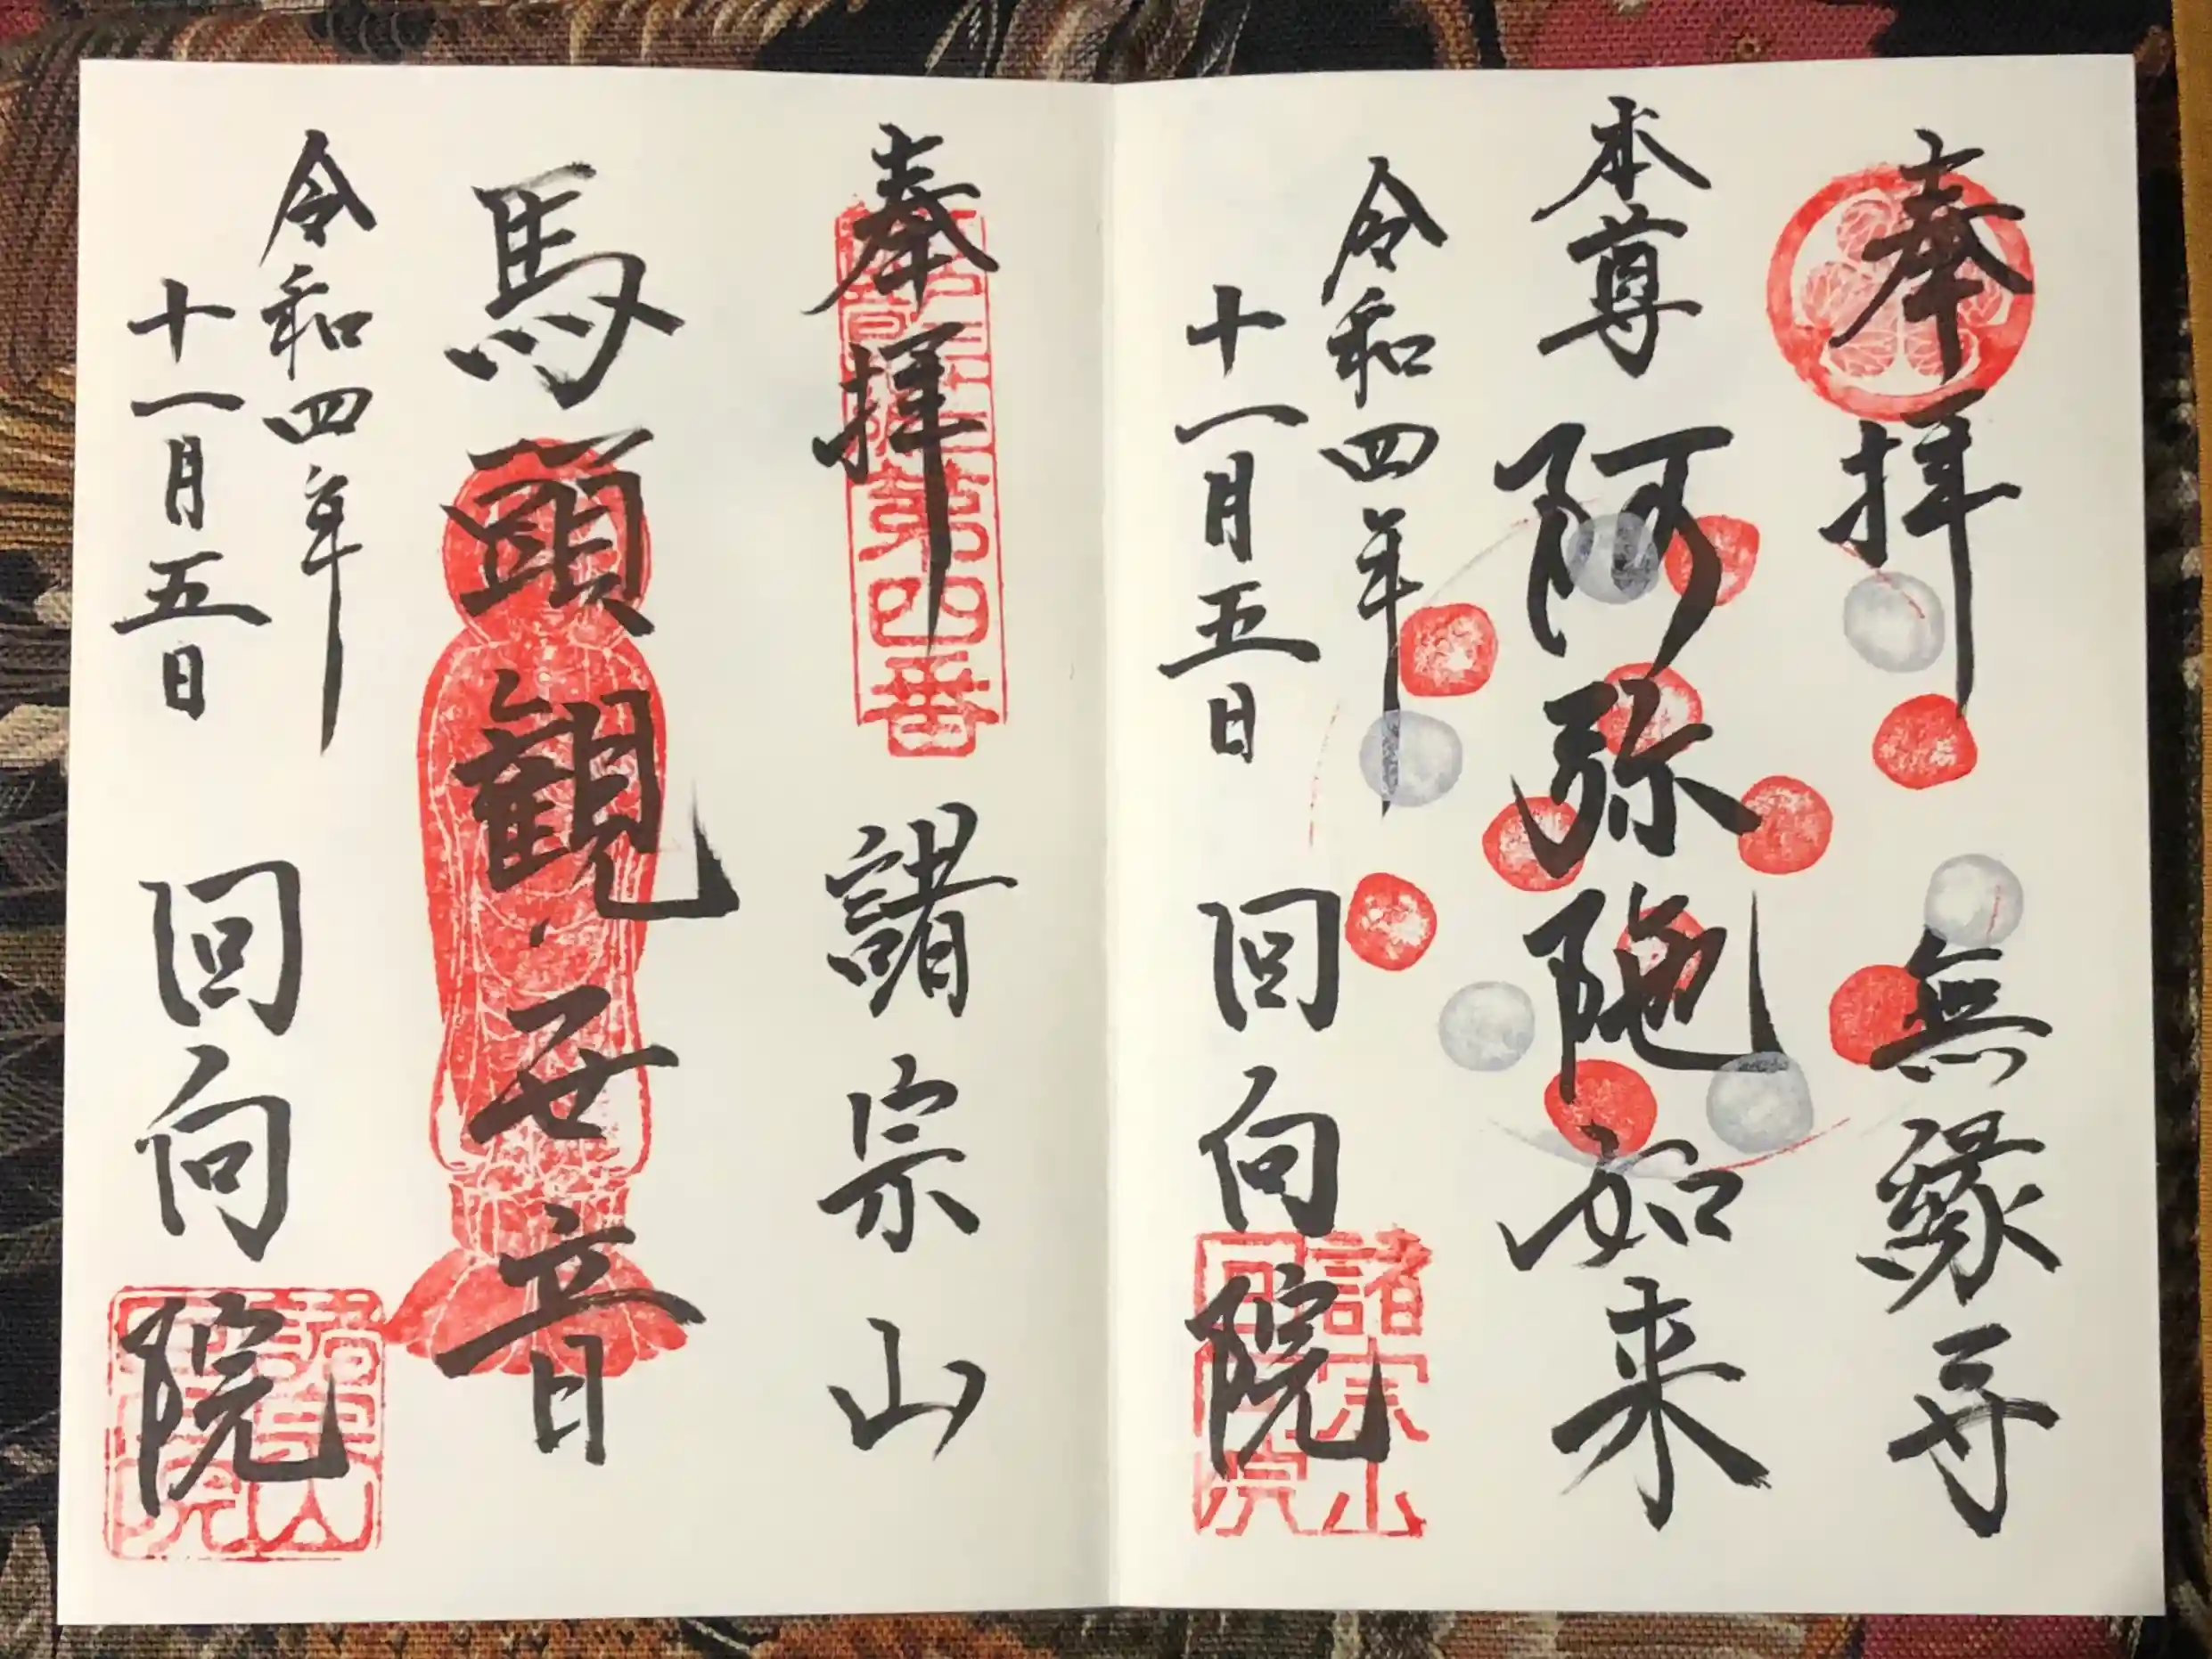 奉拝　無縁寺
本尊　阿弥陀如来
令和四年
十一月五日
回向院
諸宗山
奉拝　諸宗山
第四番
馬頭観世音
令和四年
十一月五日
回向院